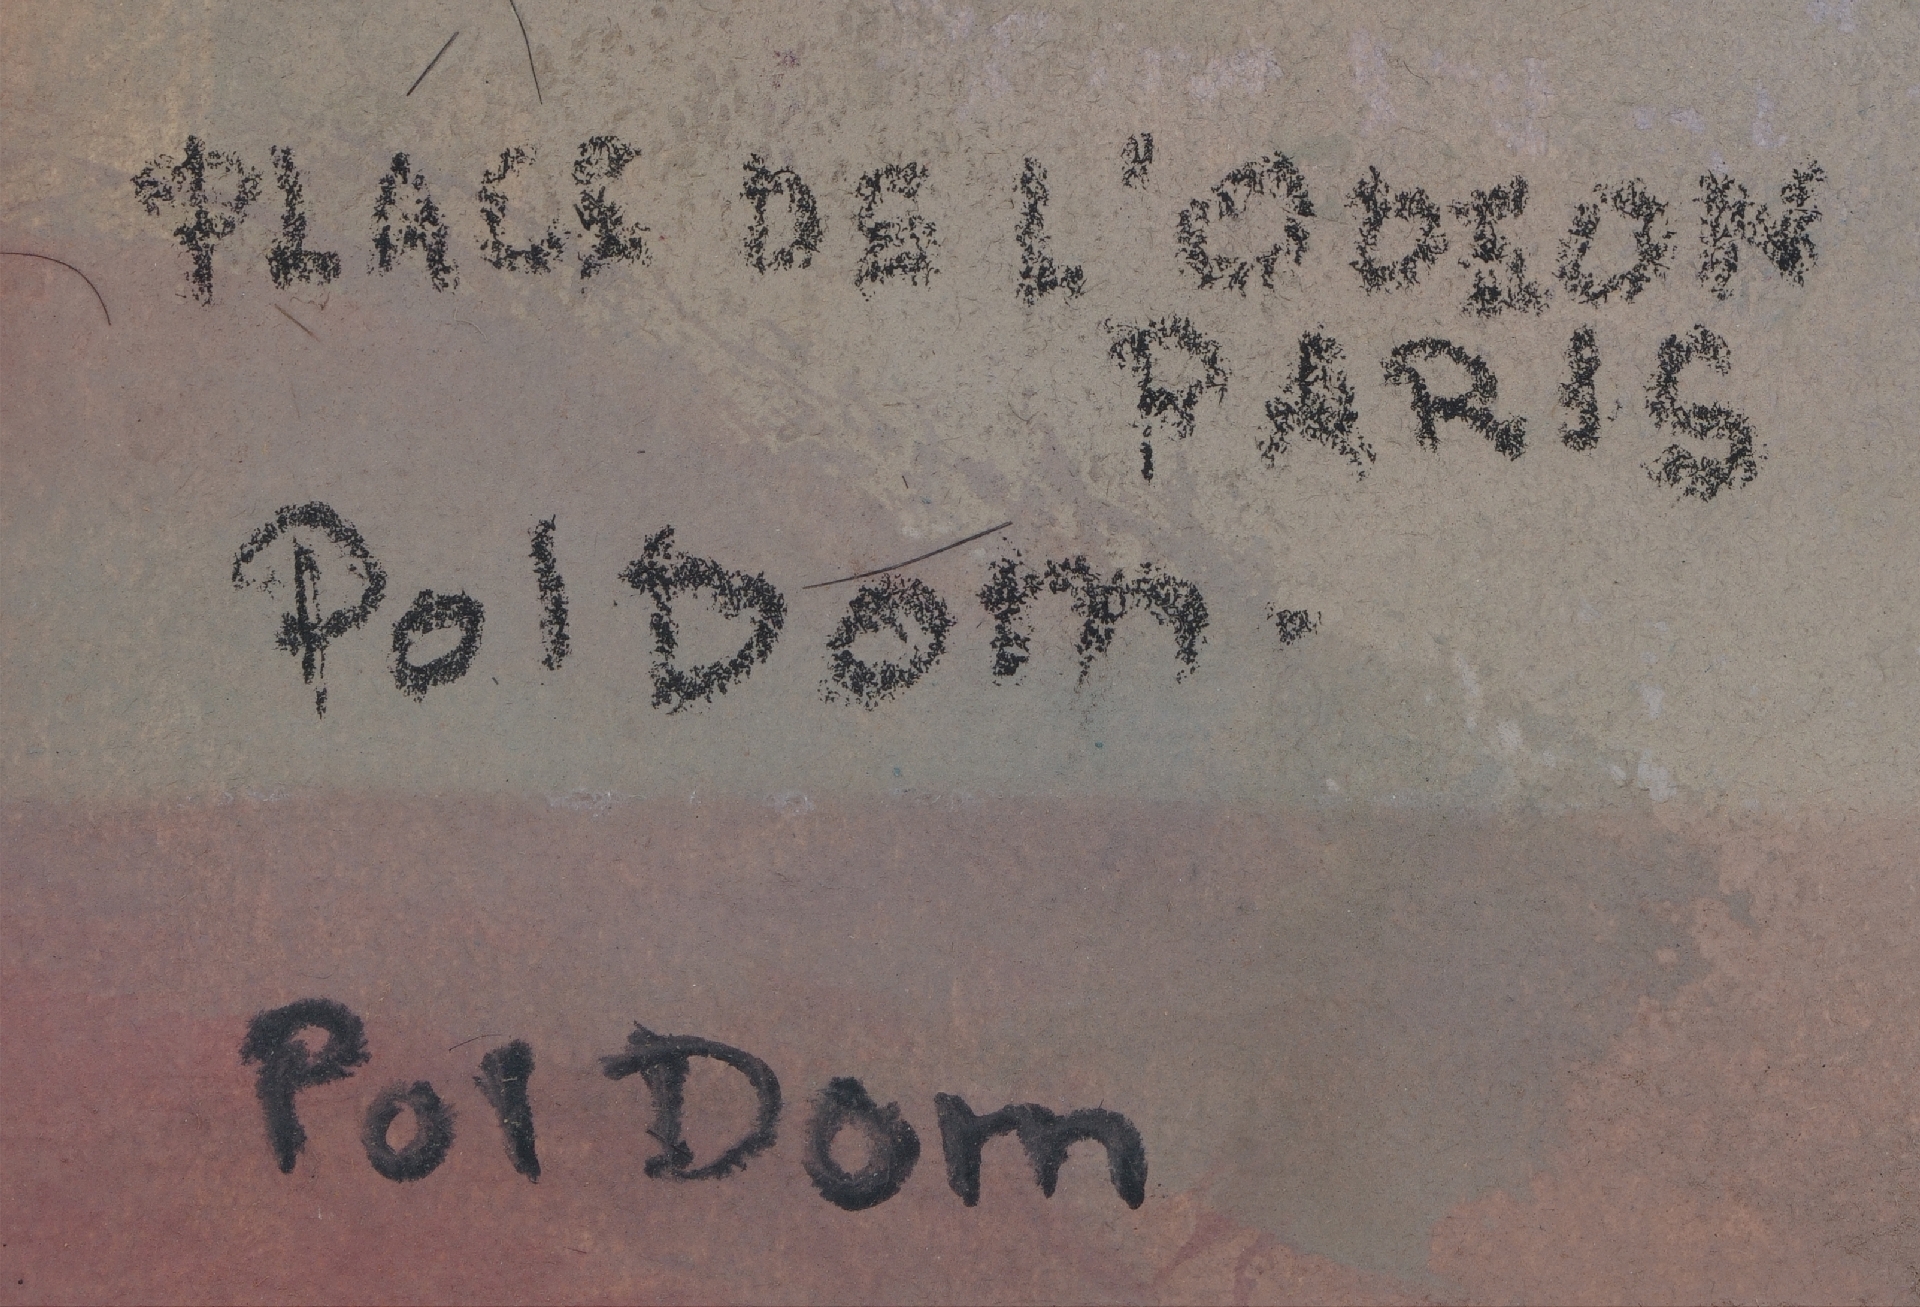 PLACE DE L'ODEON
PARIS
Pol Dom.
Pol Dom